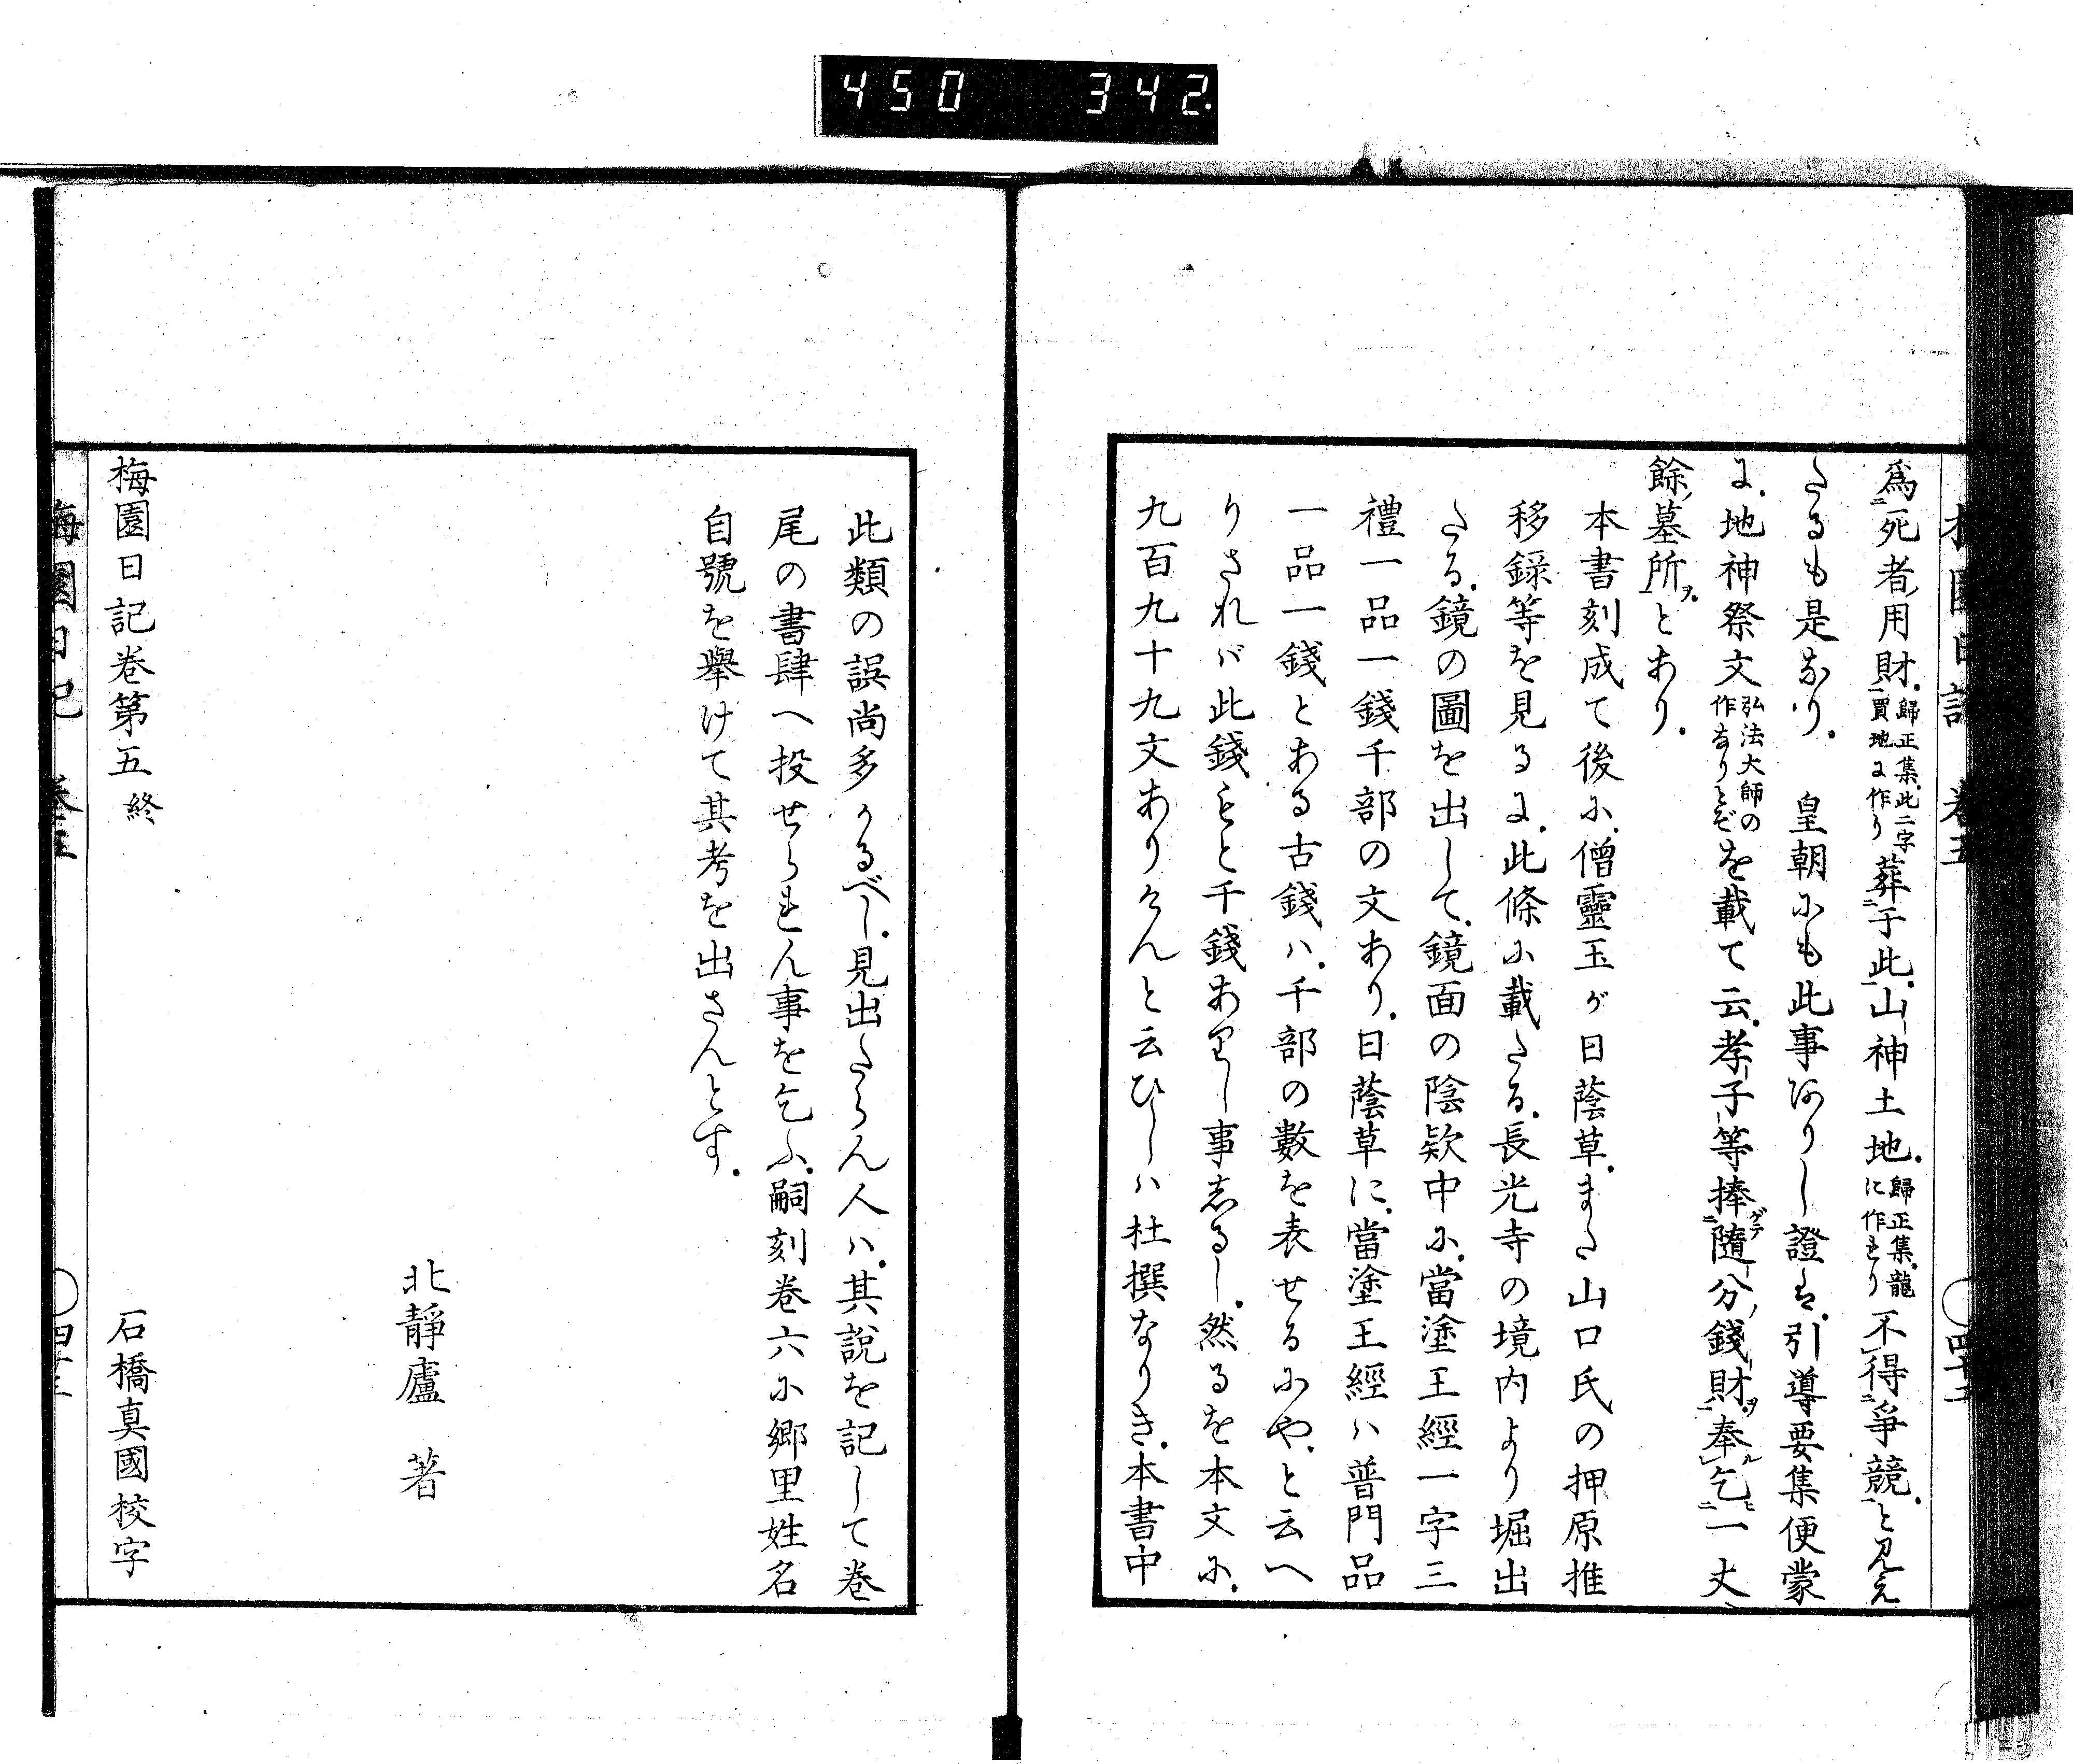 450 342.
爲二死者ノ用財一。歸正集。此二字買地に作り葬二于此一。山神土地。歸正集。龍に作れり不レ得二爭競一。と見え
たるも是なり。　皇朝にも此事ありし證は。引導要集便蒙
に。地神祭文弘法大師の作なりとぞを載て云。孝子等捧ゲテ二隨分ノ錢財ヲ一奉ル レ乞ヒ二一丈ノ
餘ノ墓所ヲ一。とあり。
本書刻成て後に。僧靈玉が日蔭草。また山口氏の押原推
移録等を見るに。此條に載たる。長光寺の境内より堀出
たる。鏡の圖を出して。鏡面の陰欵中に。當塗王經一字三
禮一品一錢千部の文あり。日蔭草に。當塗王經ハ普門品
一品一錢とある古錢ハ。千部の數を表せるにや。と云へ
りされバ此錢もと千錢ありし事しるし。然るを本文に。
九百九十九文ありけんと云ひしハ杜撰なりき。本書中
梅園日記　卷五　〇四十二
此類の誤尚多かるべし。見出たらん人ハ。其說を記して卷
尾の書肆へ投せられん事を乞ふ。嗣刻卷六に郷里姓名
自號を擧けて其考を出さんとす。
北靜廬　著
梅園日記卷第五終　石橋真國校字
梅園日記　卷五　〇四十三